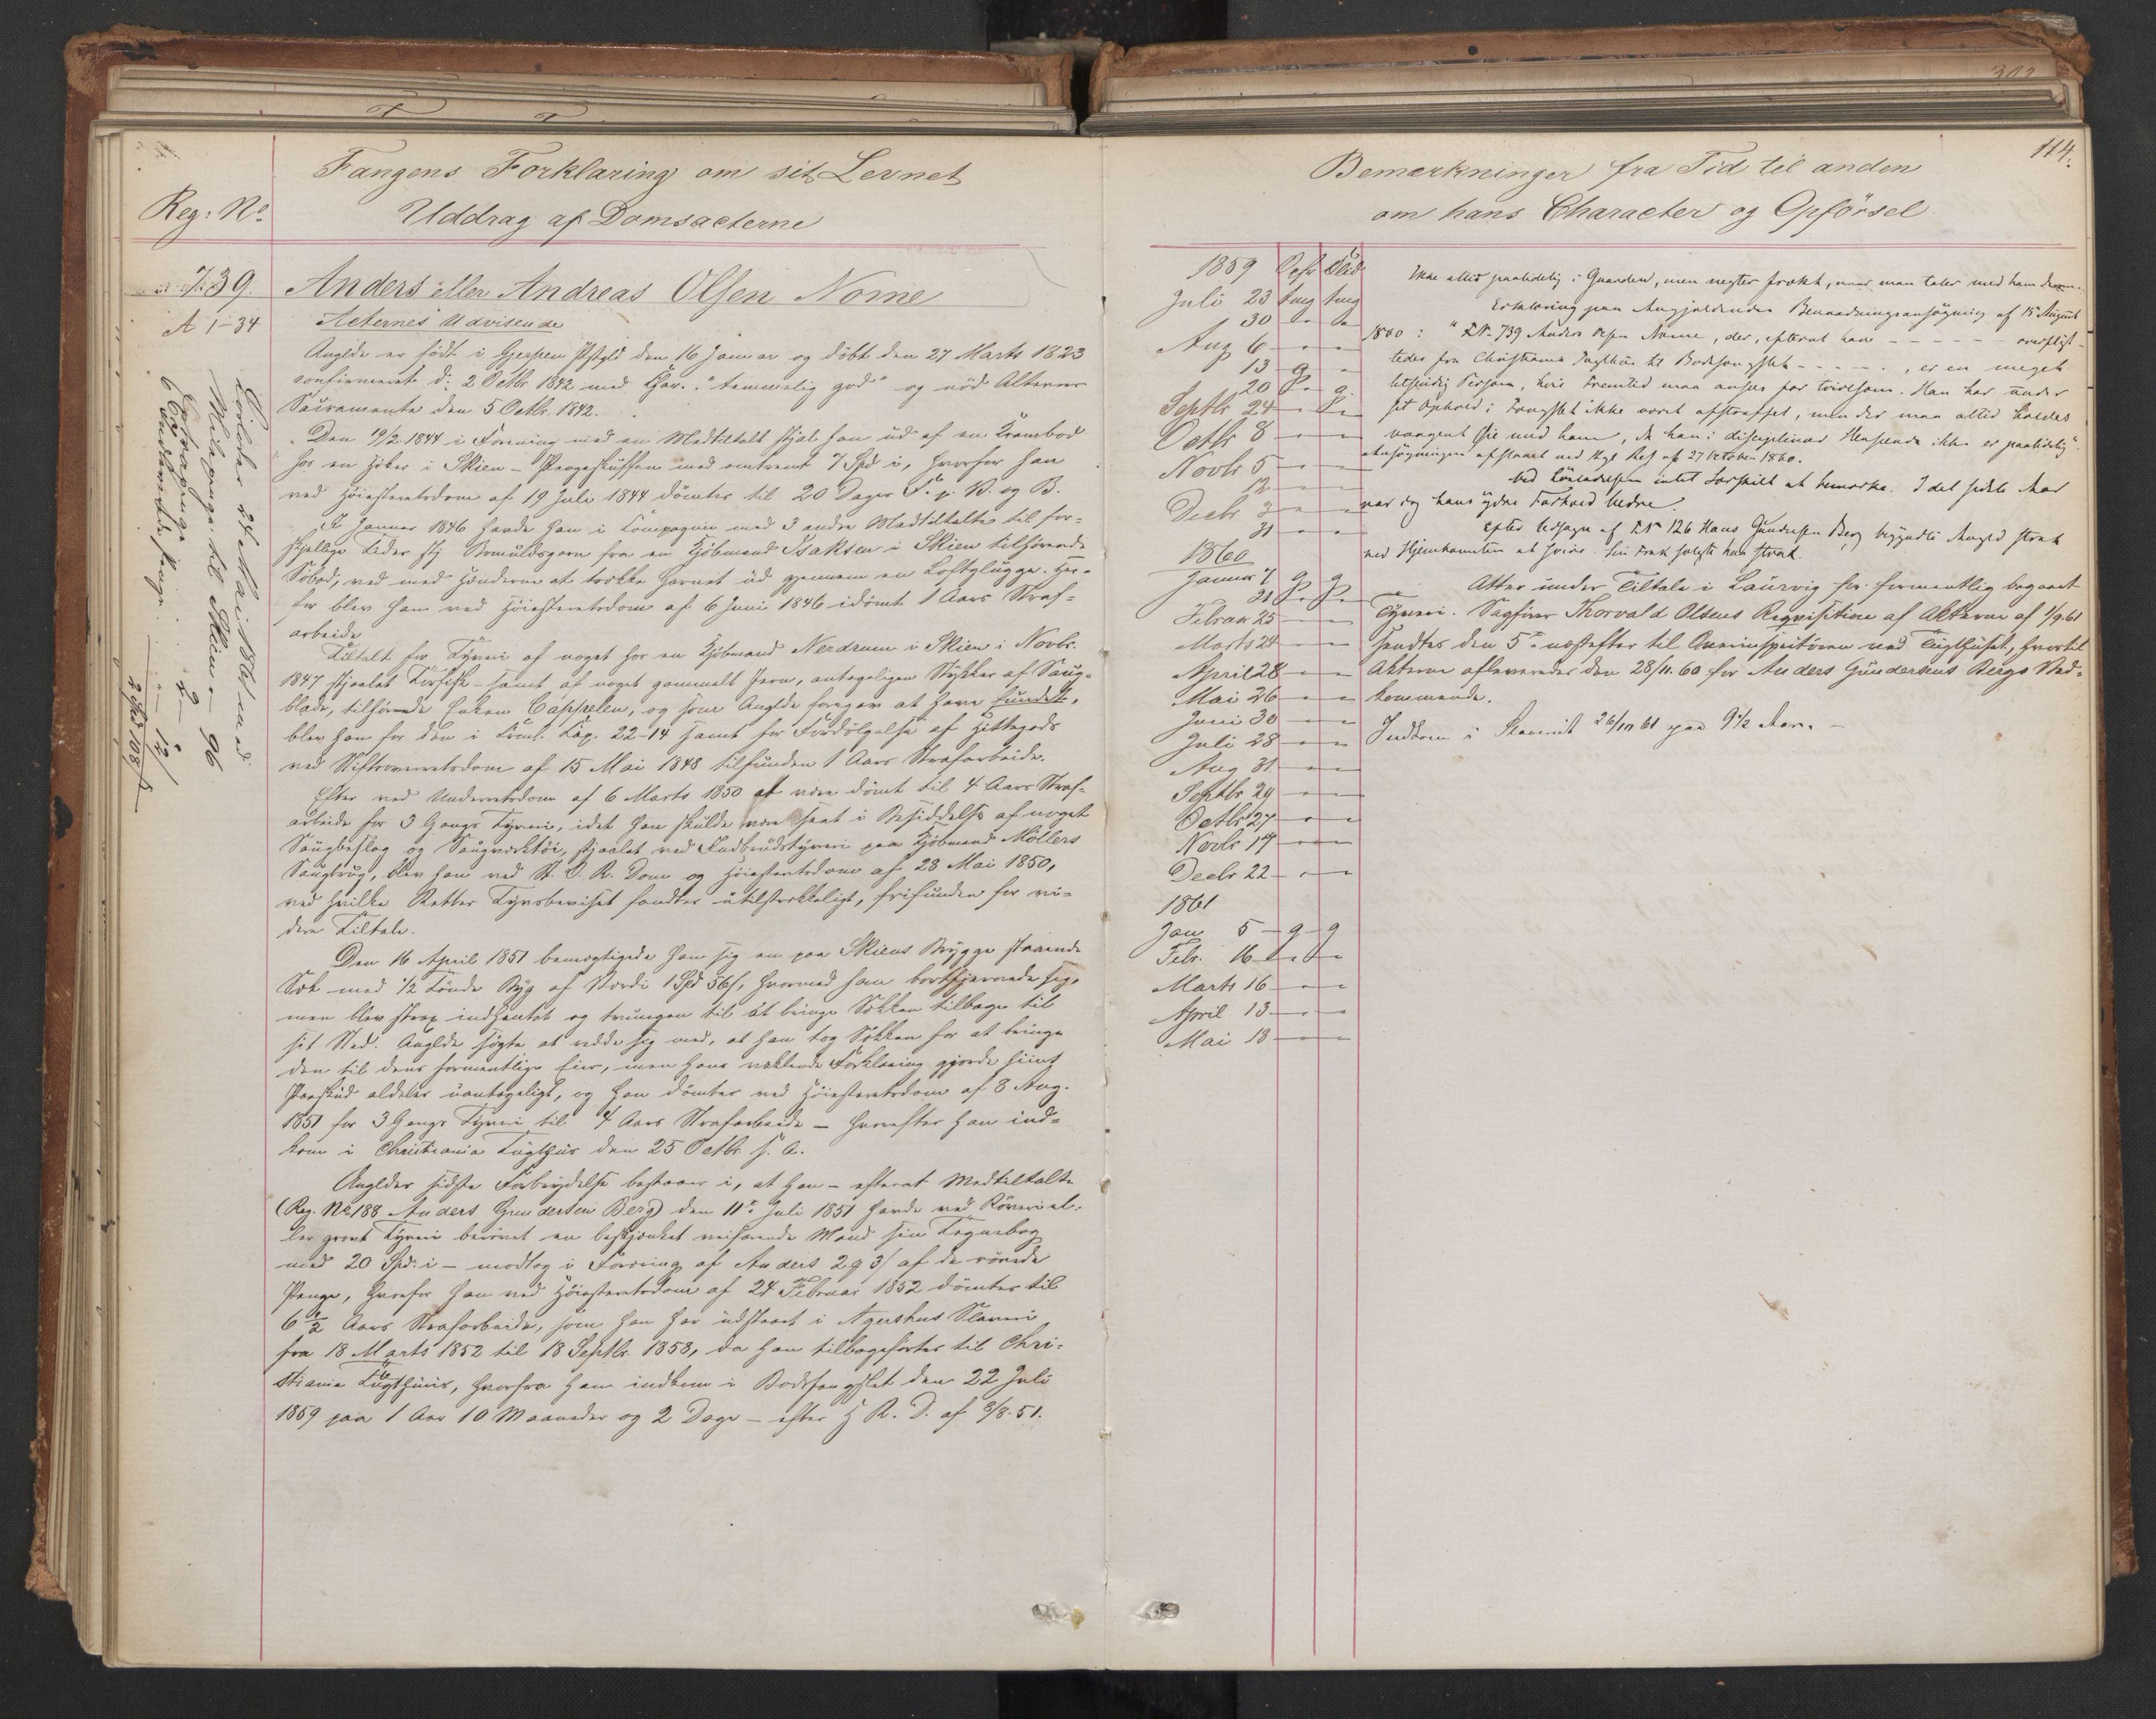 Fangens Forklaring om sit Levnet
Reg: No
Uddrag af Domsacterne
739.
Anders eller Andreas Olsen Nome
A 1-34
Acternes Udvisende
Anglde er født i Gjerpen Pstgld den 16 Januar og døbt den 27 Marts 1823
confirmeret d: 2 Octbr 1842 med Char. "temmelig god" og nød Alterens
Sacramente den 5 Octbr. 1842.
Den 19/2 1844 i Forening med en Medtiltalt stjal han ud af en Krambod
hos en Høker i Skien - Pengeskuffen med omtrent 7 Spd i, hvorfor han
ved Høiesteretsdom af 19 Juli 1844 dømtes til 20 Dages F. p. V. og B.
I Januar 1846 havde han i Compagnie med 3 andre Medtiltalte til for=
skjellige Tider stj Bomuldsgarn fra en Kjøbmand Isaksen i Skien tilhørende
Søbod, ved med Hænderne at trække Garnet ud gjennem en Loftsglugge. Her=
for blev han ved Høiesteretsdom af 6 Juni 1846 idømt 1 Aars Straf=
arbeide
Tiltalt for Tyveri af noget hos en Kjøbmand Nerdrum i Skien i Novbr.
1847 stjaalet Tørfisk - samt af noget gammelt Jern, antageligen Stykker af Saug=
blade, tilhørende Cappelen, og som Anglde foregav at have fundet,
blev han for den i Crml. Cap. 22-14 samt for Fordølgelse af Hittegods
ved Stiftsoverretsdom af 15 Mai 1848 tilfunden 1 Aars Strafarbeide.
Efter ved Underretsdom af 6 Marts 1850 at være dømt til 4 Aars Straf=
arbeide for 3 Gangs Tyveri, idet han skulde være seet i Besiddelse af noget
Saugbeslag og Saugværktøi, stjaalet ved Indbrudstyveri paa Kjøbmand Møllers
Saugbrug, blev han ved St. O. R. Dom og Høiesteretsdom af 28 Mai 1850,
ved hvilke Retter Tyvsbeviset fandtes utilstrækkeligt, frifunden for vi=
dere Tiltale.
Den 16 April 1851 bemægtigede han sig en paa Skiens Brygge staaende
Sæk med 1/2 Tønde Byg af Værdi 1 Spd 56 s, hvormed han bortfjernede sig,
men blev strax indhentet og tvungen til at bringe Sækken tilbage til
sit Sted. Anglde søgte at redde sig med, at han tog Sækken for at bringe
den til dens formentlige Eier, men hans vaklende Forklaring gjorde hiint
Paaskud aldeles uantageligt, og han dømtes ved Høiesteretsdom af 8 Aug.
1851 for 3 Gangs Tyveri til 4 Aars Strafarbeide - hvorefter han ind=
kom i Christiania Tugthus den 25 Octbr s. A.
Angldes sidste Forbrydelse bestaaer i, at han - efterat Medtiltalte
(Reg. No 188 Anders Gundersen Berg) den 11te Juli 1851 havde ved Røveri el=
ler grovt Tyveri berøvet en beskjænket veifarende Mand sin Tegnebog
med 20 Spd: i - modtog i Foræring af Anders 2 a 3 af de røvede
Penge, hvorfor han ved Høiesteretsdom af 24 Februar 1852 dømtes til
6 1/2 Aars Strafarbeide, som han har udstaaet i Agershus Slaveri
fra 18 Marts 1852 til 18 Septbr. 1858, da han tilbageførtes til Chri=
stiania Tugthuus, hvorfra han indkom i Bodsfængslet den 22 Juli
1859 paa 1 Aar 10 Maaneder og 2 Dage - efter H R. D. af 8/8. 51.
Løslades 24 Mai 1861 med
Reisepenge til Skien - 96
Extrapenge 2 -
2 Spd 108 s
114.
Bemærkninger fra Tid til anden
om hans Character og Opførsel
1859 Opfr Flid
Juli 23 tmg tmg
30
Aug 6
13 g
20
Septbr 24
Octbr 8
Novbr 5
12
Decbr 3
31
1860
Januar 7 g g
21
Februar 25
Marts 24
April 28
Mai 26
Juni 30
Juli 28
Aug 31
Septbr 29
Octbr 27
Novbr 17
Decbr 22
1861
Jan 5 g g
Febr. 16
Marts 16
April 13
Mai 18
Ikke altid paalidelig i Gaarden, men negter frækt, naar man taler med ham derom.
Erklæring paa Angjældendes Benaadningsansøgning af 15 August
1860: " F.N. 739 Anders Olsen Nome, der, efterat have - - - - - overflyt-
tedes fra Christiania Tugthus til Bodsfængslet - - - - -, er en meget
letsindig Person, hvis Fremtid maa ansees for tvivlsom. Han har under
sit Ophold i Fængslet ikke været afstraffet, men der maa altid holdes
vaagent Øie med ham, da han i disciplinær Henseende ikke er paalidelig".
Ansøgningen afslaaet ved Kgl Res af 27 October 1860.
Ved Løsladelsen intet Særskilt at bemærke. I det sidste Aar
var dog hans ydre Forhold bedre.
Efter Udsagn af F.N. 126 Hans Gundersen Berg begyndte Angld strax
ved Hjemkomsten at svire. Sin Frak solgte han strax.
Atter under Tiltale i Laurvig for formentlig begaaet
Tyveri. Sagfører Thorvald Olsens Reqvisition af Akterne af 1/9. 61
sendtes den 5te næstefter til Overinspectøren ved Tugthuset, hvortil
Akterne afleveredes den 28/11. 60 for Anders Gundersens Bergs Ved=
kommende.
Indkom i Slaveriet 26/10 61 paa 9 1/2 Aar. -